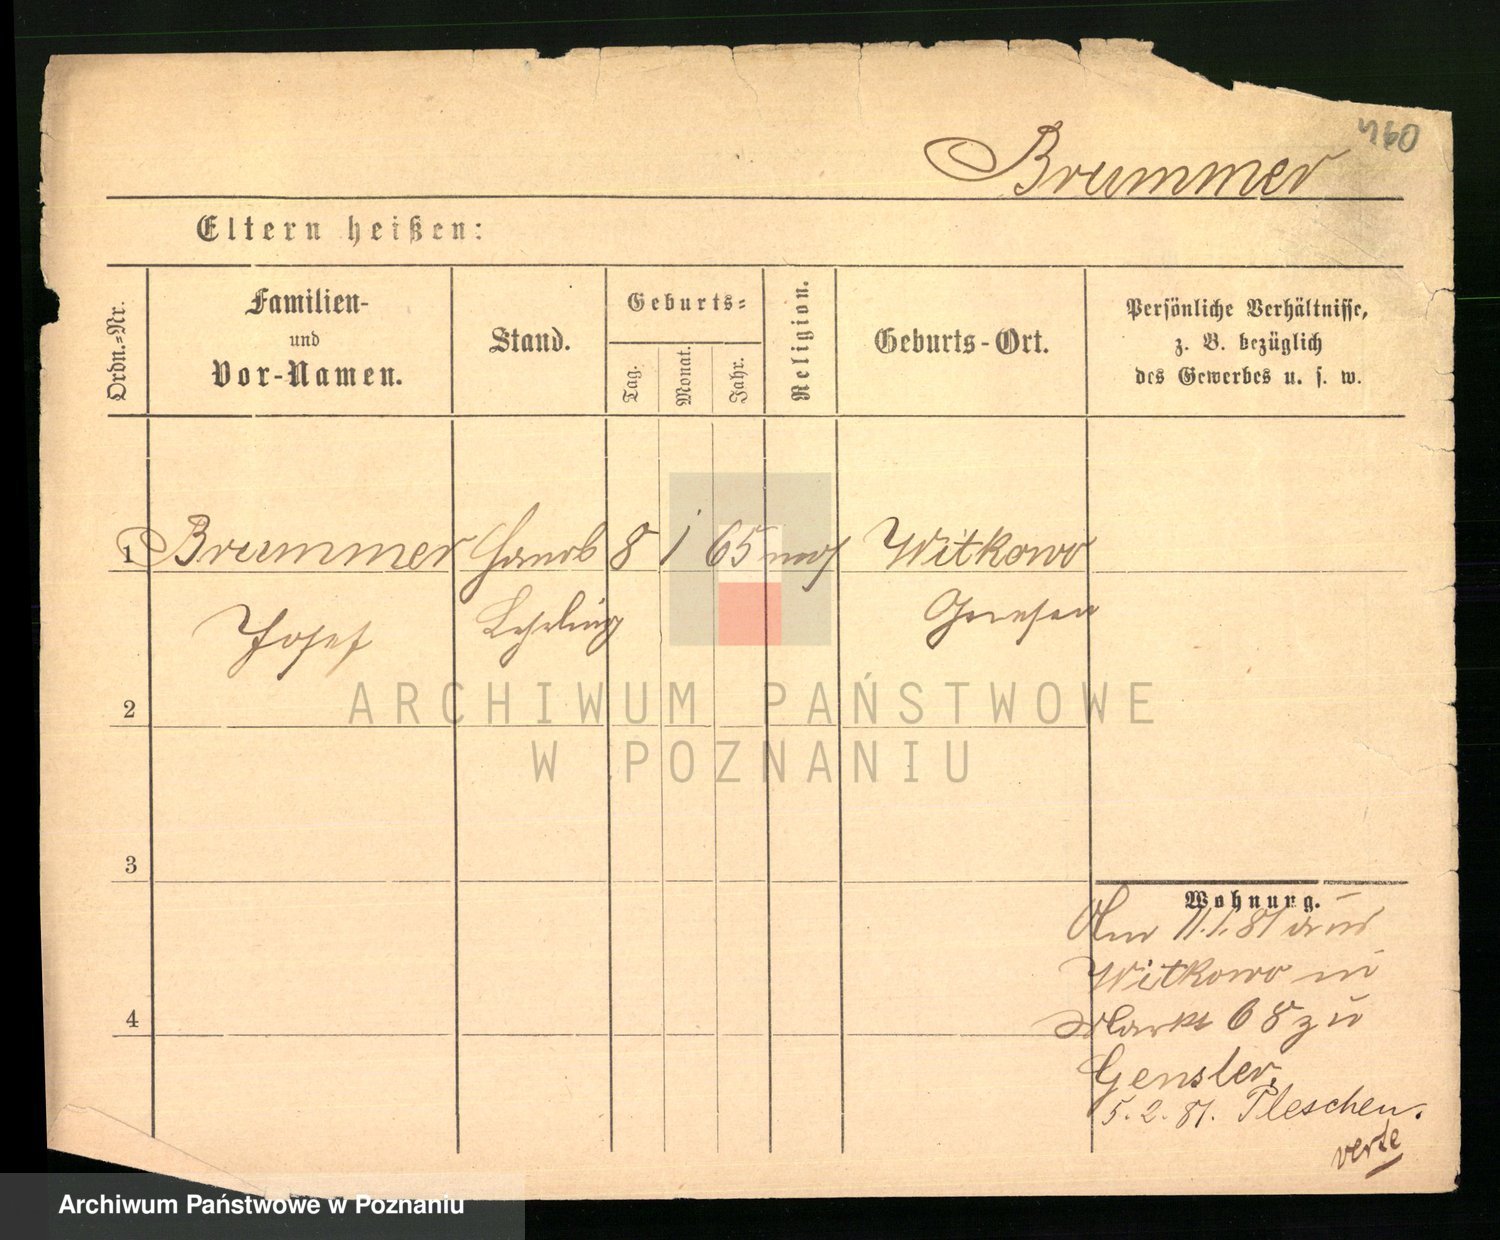 460
Brummer
Eltern heißen:
Ordn.=Nr.
Familien-
und
Vor-Namen.
Stand.
Geburts=
Tag.
Monat.
Jahr.
Religion.
Geburts-Ort.
Persönliche Verhältnisse,
z. B. bezüglich
des Gewerbes u. s. w.
1 Brummer 8 1 65 mos Witkowo
Josef Lehrling Gnesen
ARCHIWUM PAŃSTWOWE
W POZNANIU
2
3
4
Wohnung.
Am 11.1.81 aus
Witkowo in
Markt 68 zu
Gensler.
5.2.81. Pleschen.
verte
Archiwum Państwowe w Poznaniu